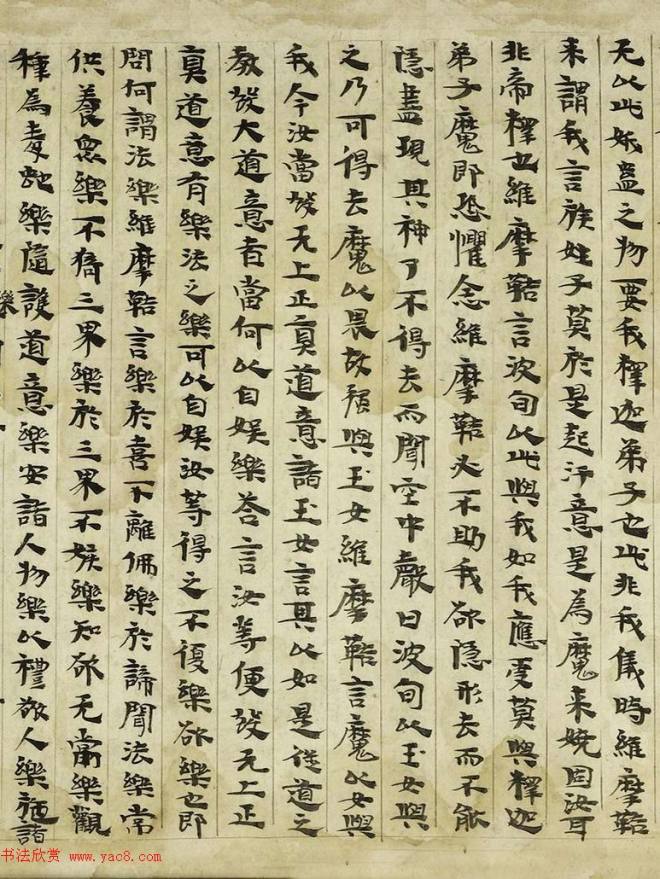 无以此妖蛊之物要我釋迦弟子也此非我儀時維摩鞊
来謂我言族姓子莫於是起汙意是為魔来嬈固汝耳
非帝釋也維摩鞊言波旬以此與我如我應受莫與釋迦
弟子魔即恐懼念維摩鞊必不助我欲隱形去而不能
隱盡現其神了不得去而聞空中聲曰波旬以玉女與
之乃可得去魔以畏故强與玉女維摩鞊言魔以女與
我今汝當發无上正真道意諸玉女言其以如是從道之
教發大道意者當何以自娛樂荅言汝等便發无上正
真道意有樂法之樂可以自娛汝等得之不復樂欲樂也即
問何謂法樂維摩鞊言樂於喜不離佛樂於諦聞法樂常
供養衆樂不猗三界樂於三界不嫉樂知欲无常樂觀
種為毒蛇樂隨護道意樂安諸人物樂以禮敬人樂施諸
书法欣赏 www.yac8.com